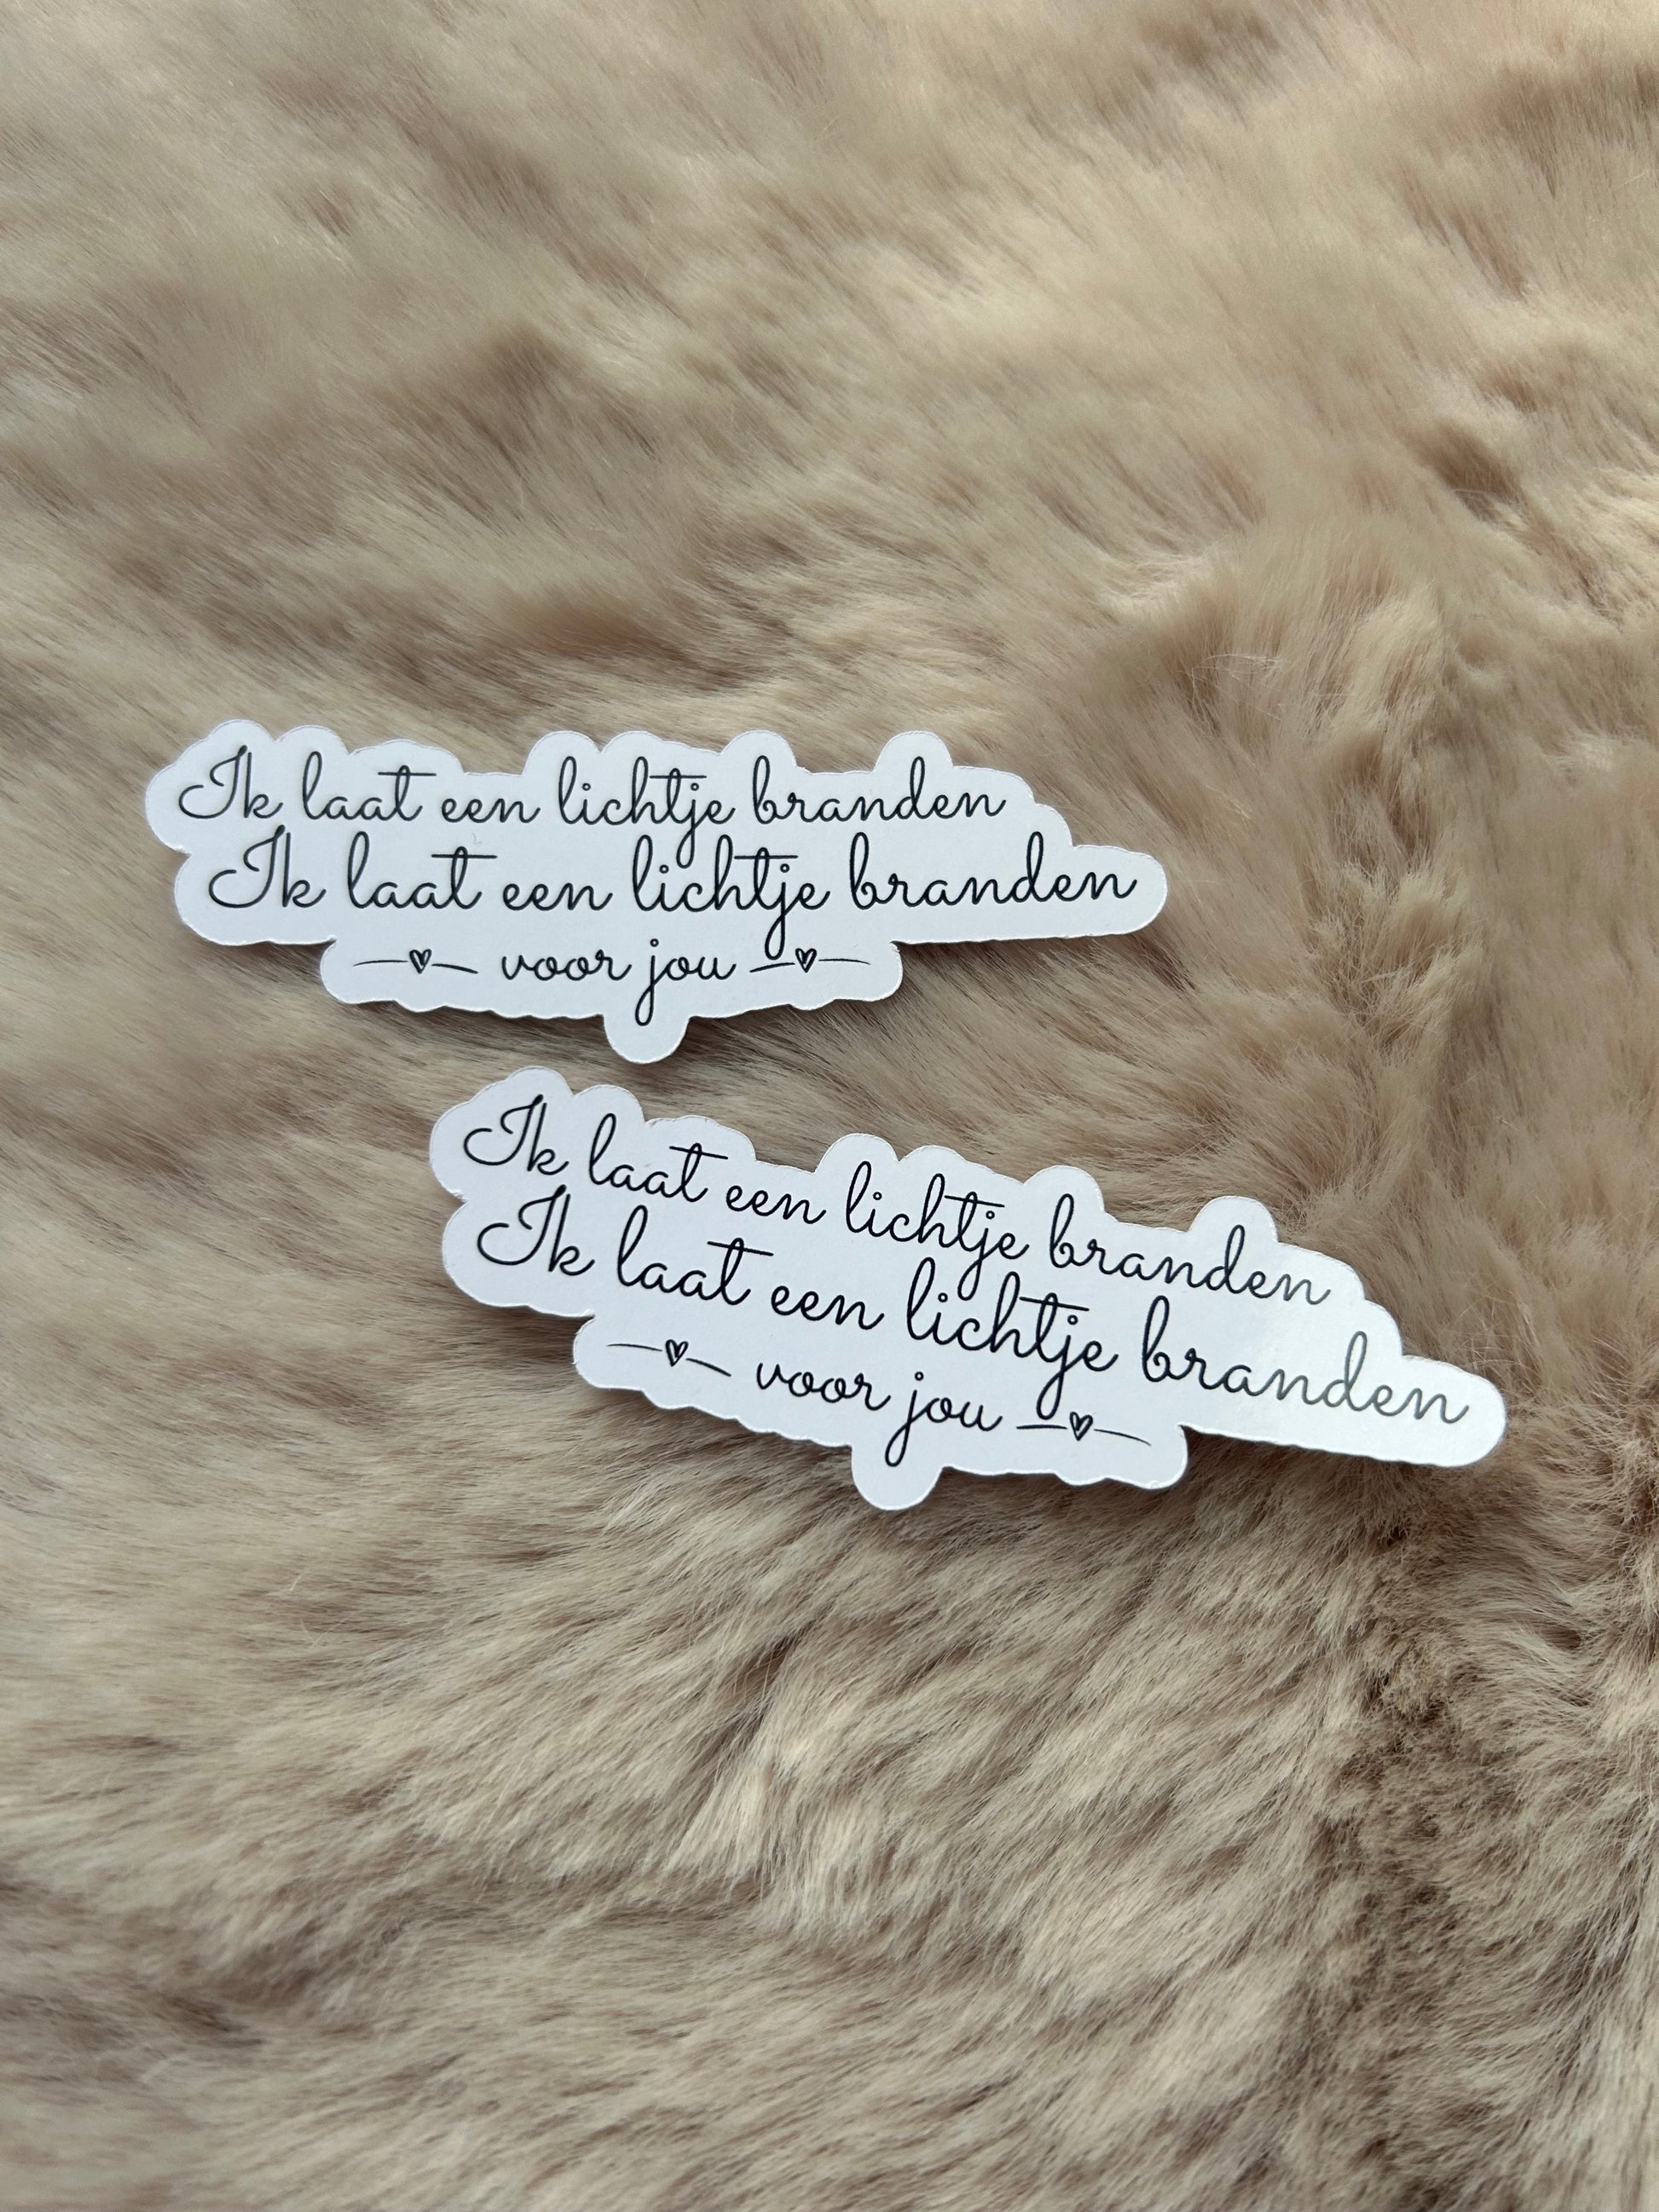 Ik laat een lichtje branden
Ik laat een lichtje branden
voor jou
Ik laat een lichtje branden
Ik laat een lichtje branden
voor jou